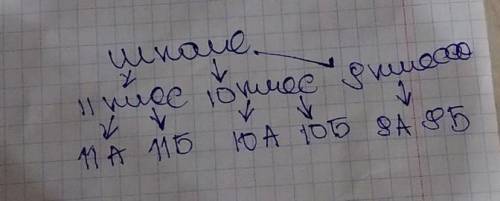 школе
11 класс 10 класс 9 класс
11А 11Б 10А 10Б 9А 9Б